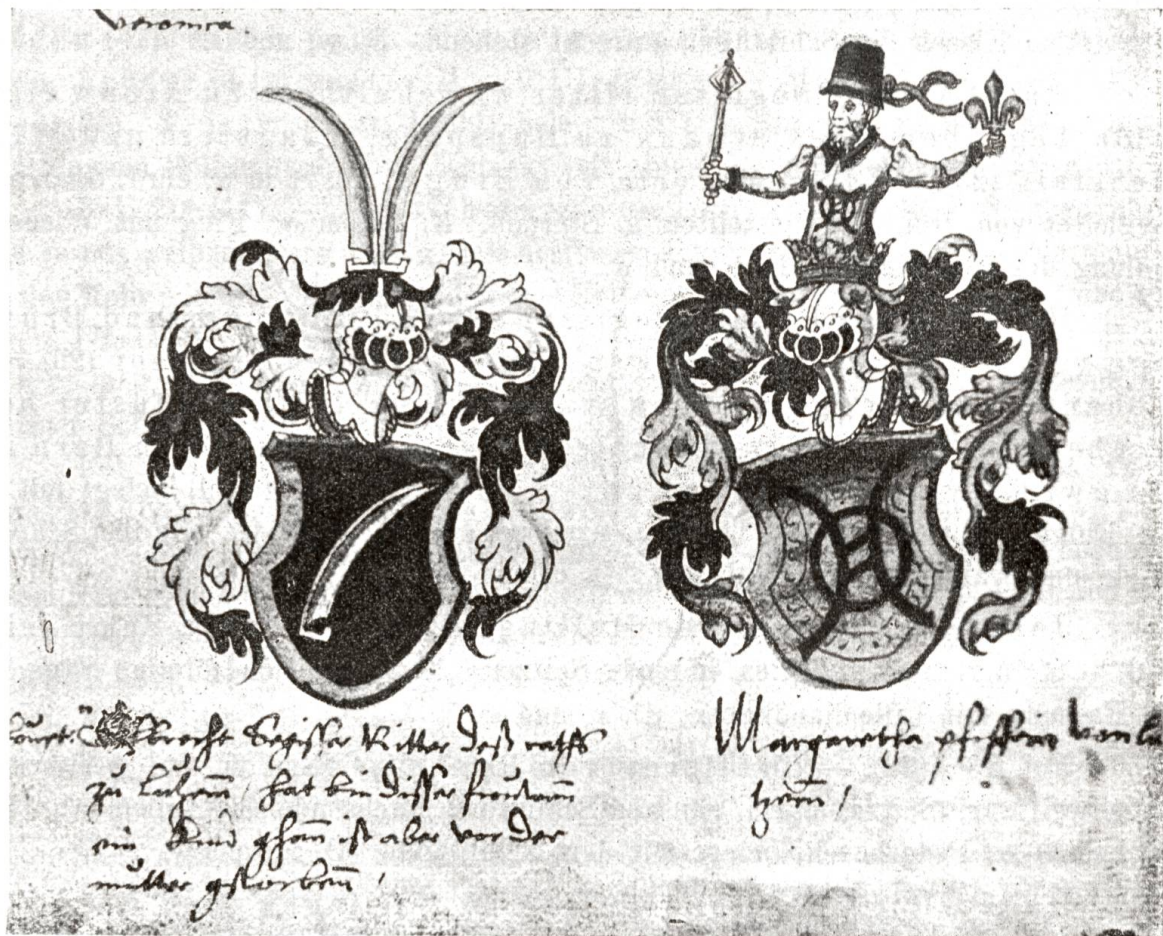 Veronica
Albrecht Segisser Ritter deß raths
zu Lutzernn / hat bin disser frouwenn
ein Kind ghann ist aber vor der
mutter gstorbenn /
Margaretha pfifferin von Lu
tzernn /